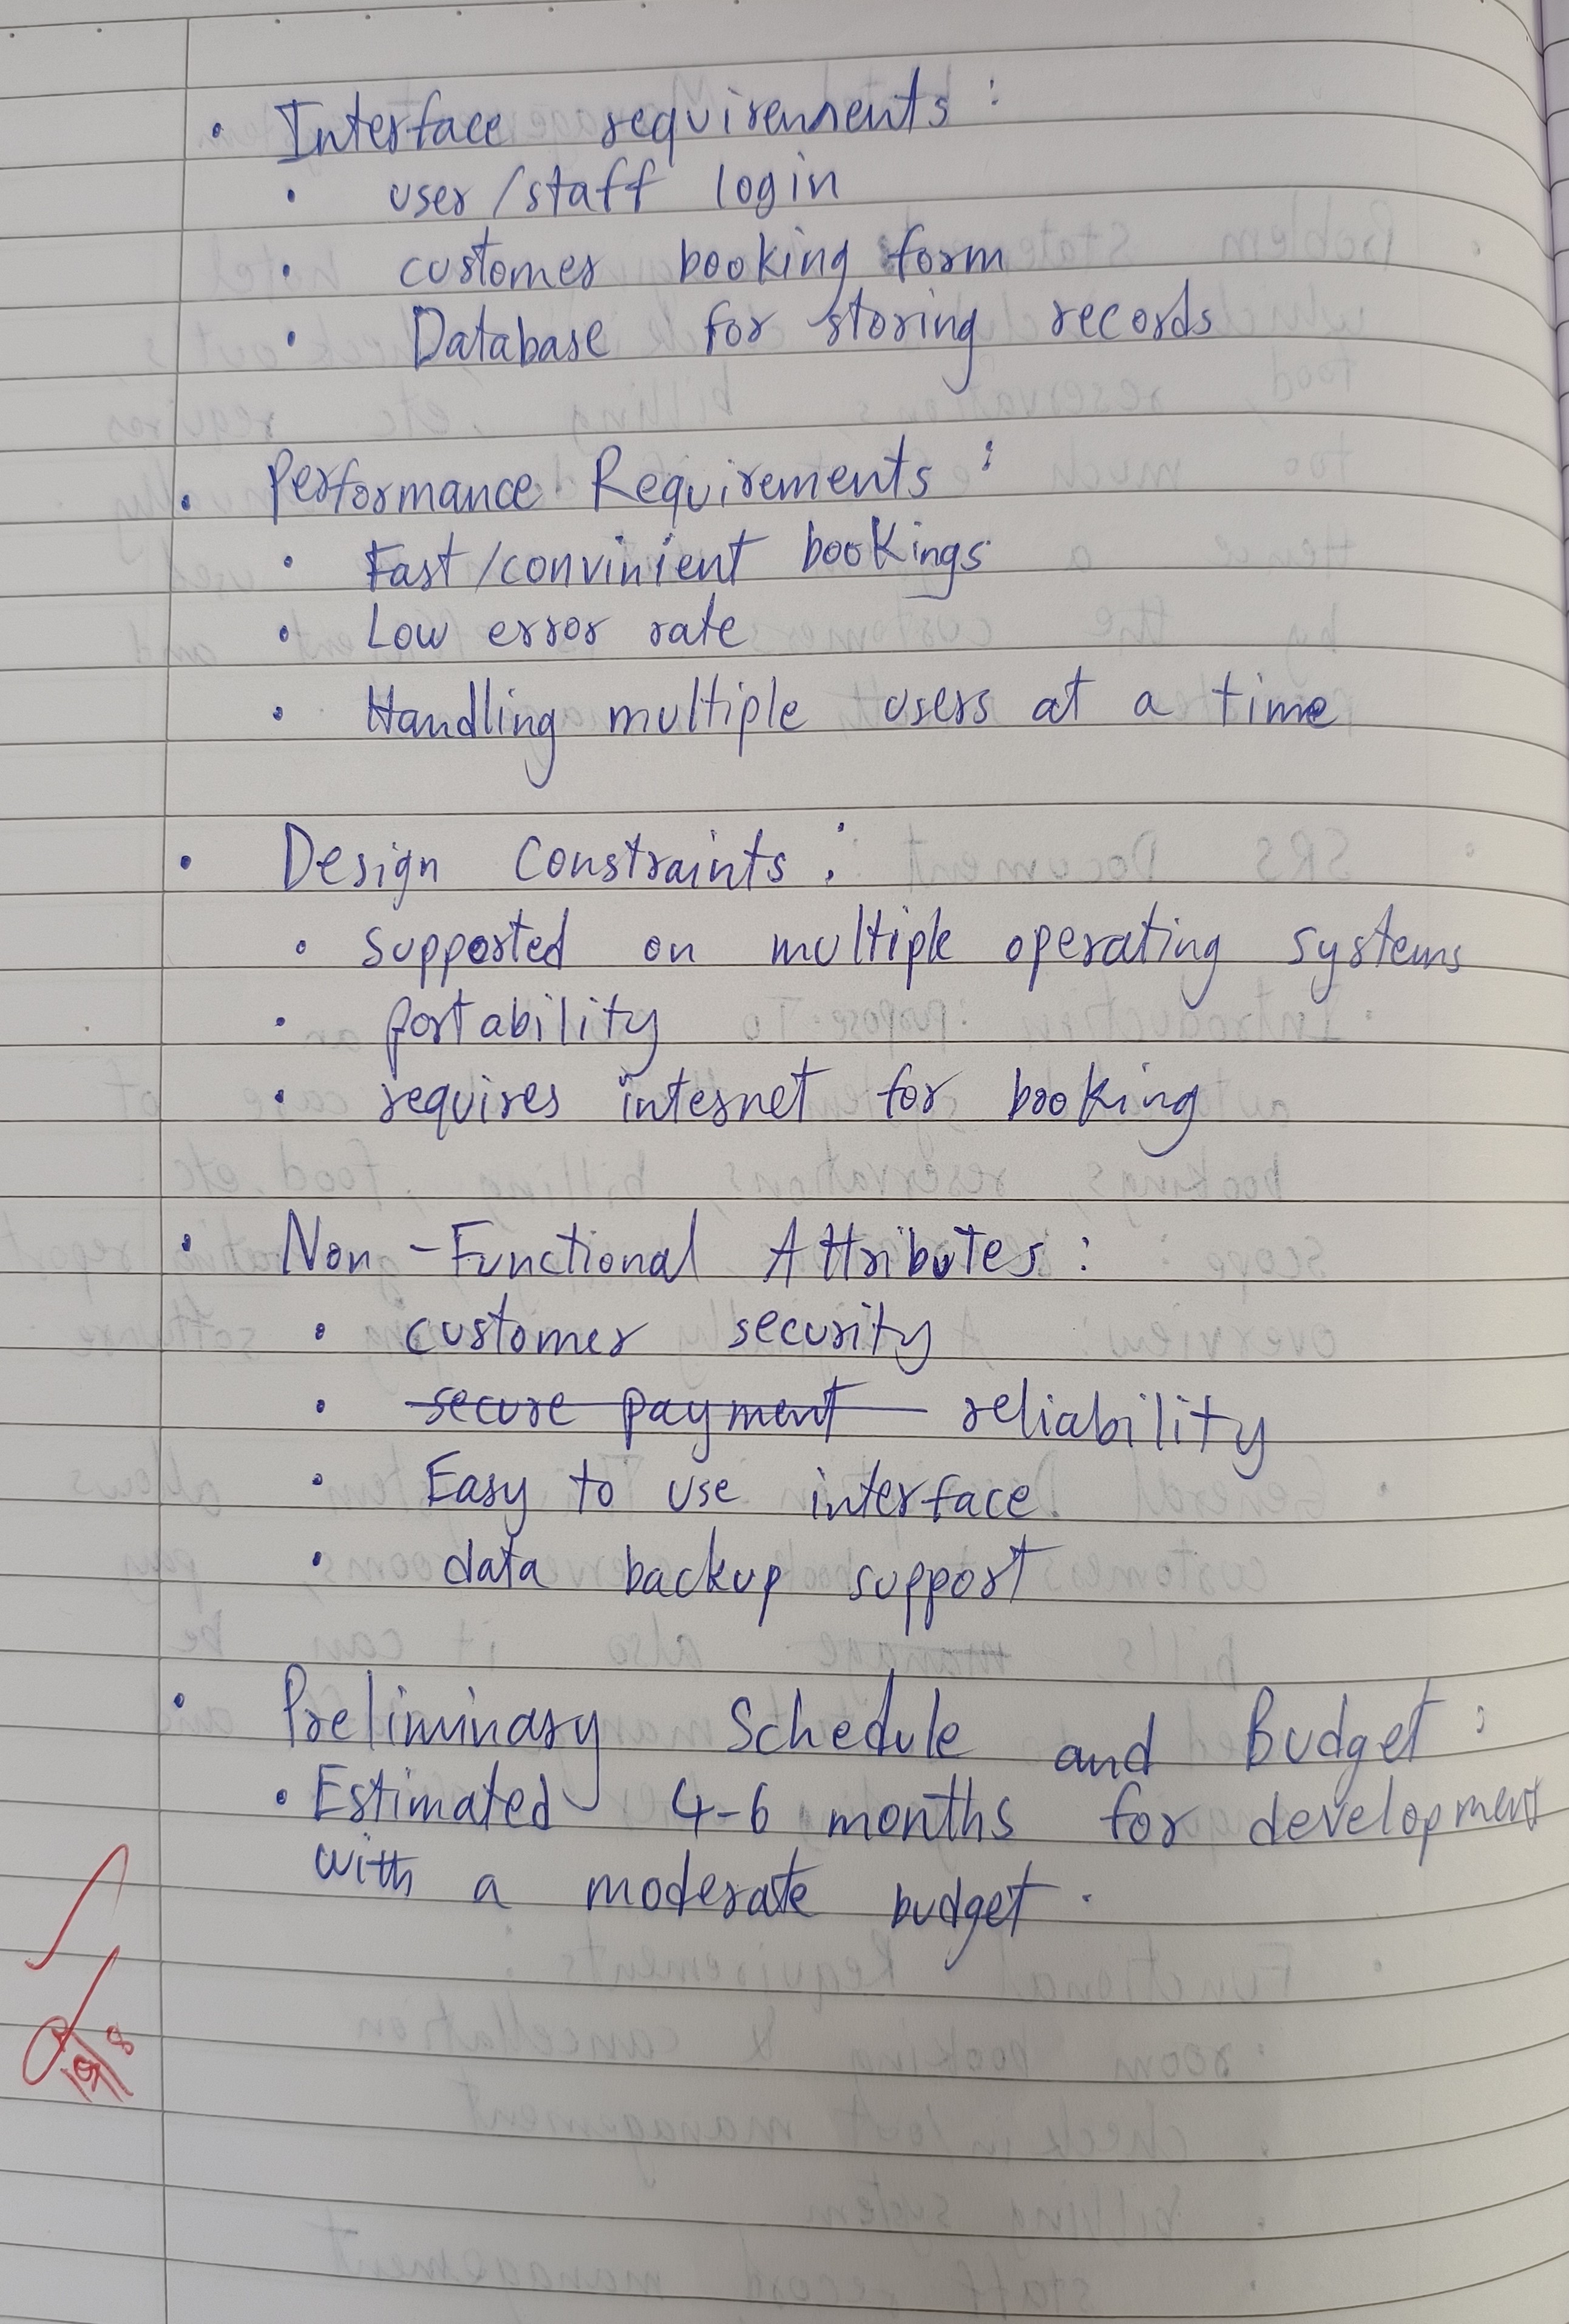 • Interface requirements :
• user/staff login
• customer booking form
• Database for storing records
• Performance Requirements :
• Fast/convinient bookings
• Low error rate
• Handling multiple users at a time
• Design Constraints :
• supported on multiple operating systems
• portability
• requires internet for booking
• Non-Functional Attributes :
• customer security
• secure payment reliability
• Easy to use interface
• data backup support
• Preliminary Schedule and Budget :
• Estimated 4-6 months for development
with a moderate budget.
19/8